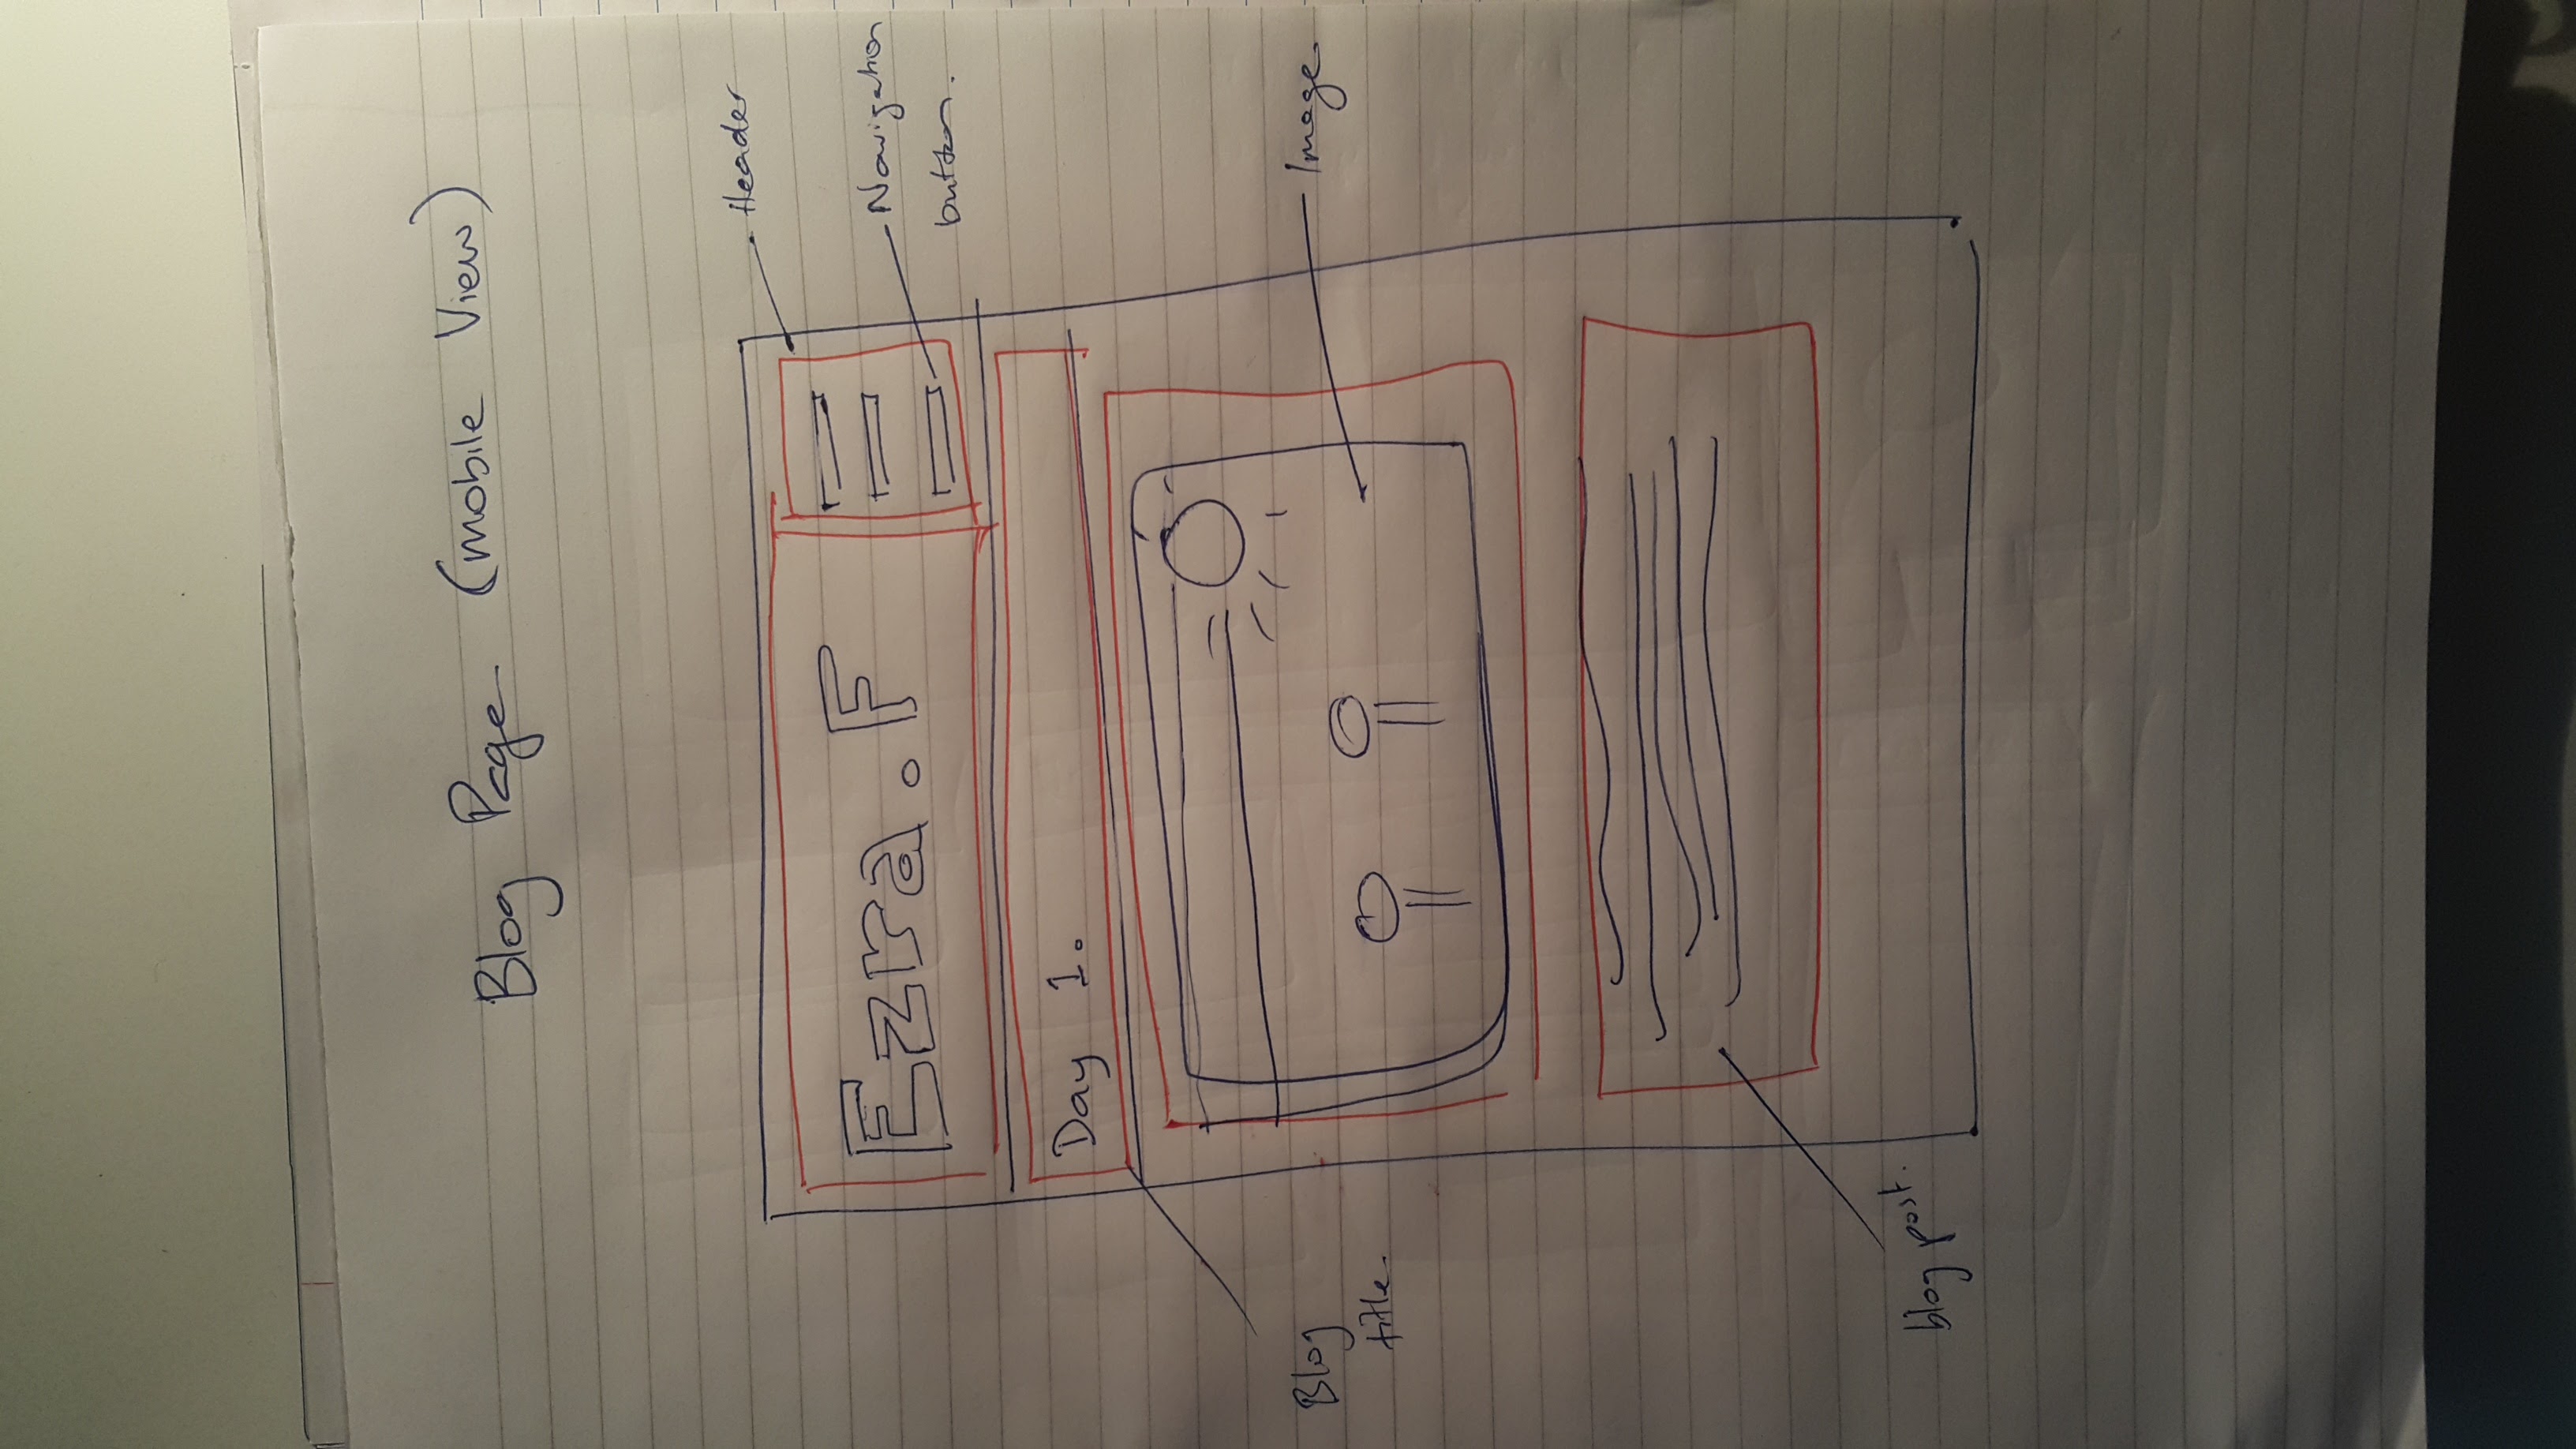 Blog Page (mobile View)
Header
Ezra.F
Navigation
button.
Day 1.
Blog
title.
Image.
blog post.